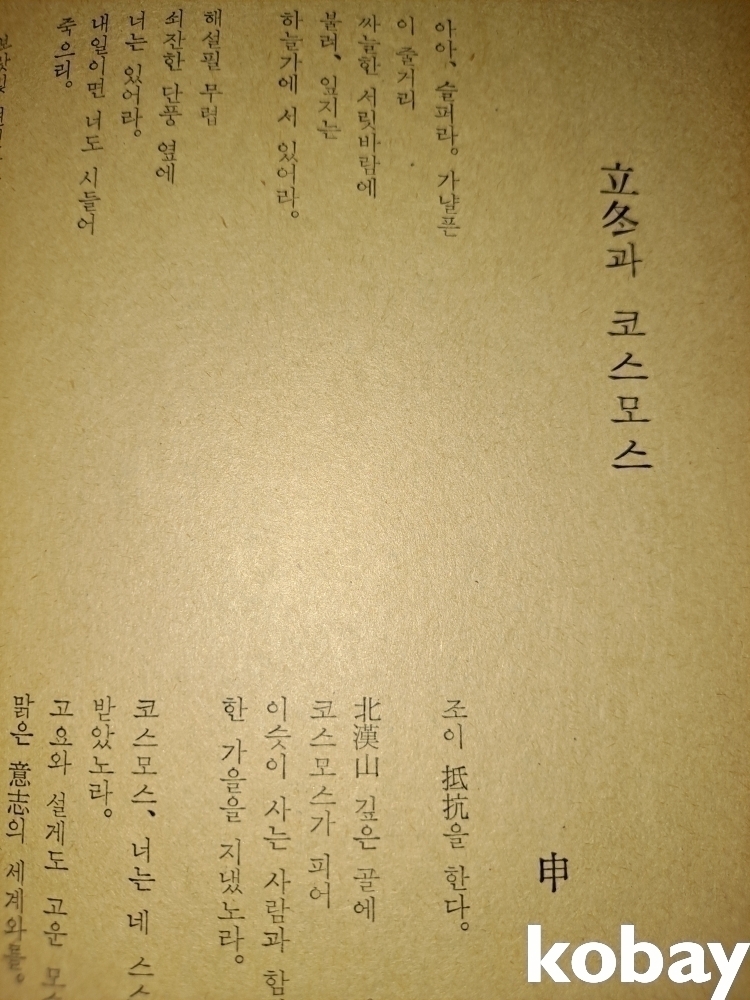 立冬과 코스모스
申
아아、슬퍼라。가냘픈
이 줄거리
싸늘한 서릿바람에
불려、잎지는
하늘가에 서 있어라。
해설필 무렵
쇠잔한 단풍 옆에
너는 있어라。
내일이면 너도 시들어
죽으리。
조이 抵抗을 한다。
北漢山 깊은 골에
코스모스가 피어
이슷이 사는 사람과 함
한 가을을 지냈노라。
코스모스、너는 네 스스
받았노라。
고요와 설게도 고운 모
맑은 意志의 세계와를。
kobay